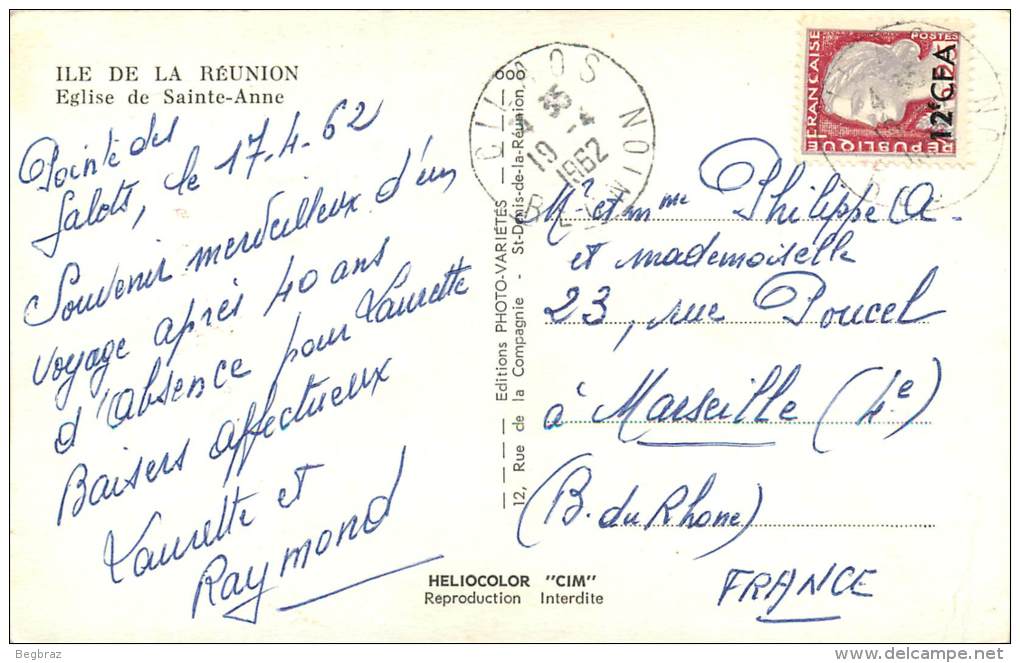 ILE DE LA RÉUNION
Eglise de Sainte-Anne
Pointe des
Galets, le 17.4.62
Souvenir merveilleux d'un
voyage après 40 ans
d'absence pour Laurette
Baisers affectueux
Laurette et
Raymond
— — — Editions PHOTO-VARIÉTÉS — — —
12, Rue de la Compagnie - St-Denis-de-la-Réunion.
1962
RÉPUBLIQUE FRANÇAISE
POSTES
12f CFA
Mr et mme Philippe A
et mademoiselle
23, rue Poucel
à Marseille (4e)
(B. du Rhone)
FRANCE
HELIOCOLOR "CIM"
Reproduction Interdite
Begbraz
delcampe.net